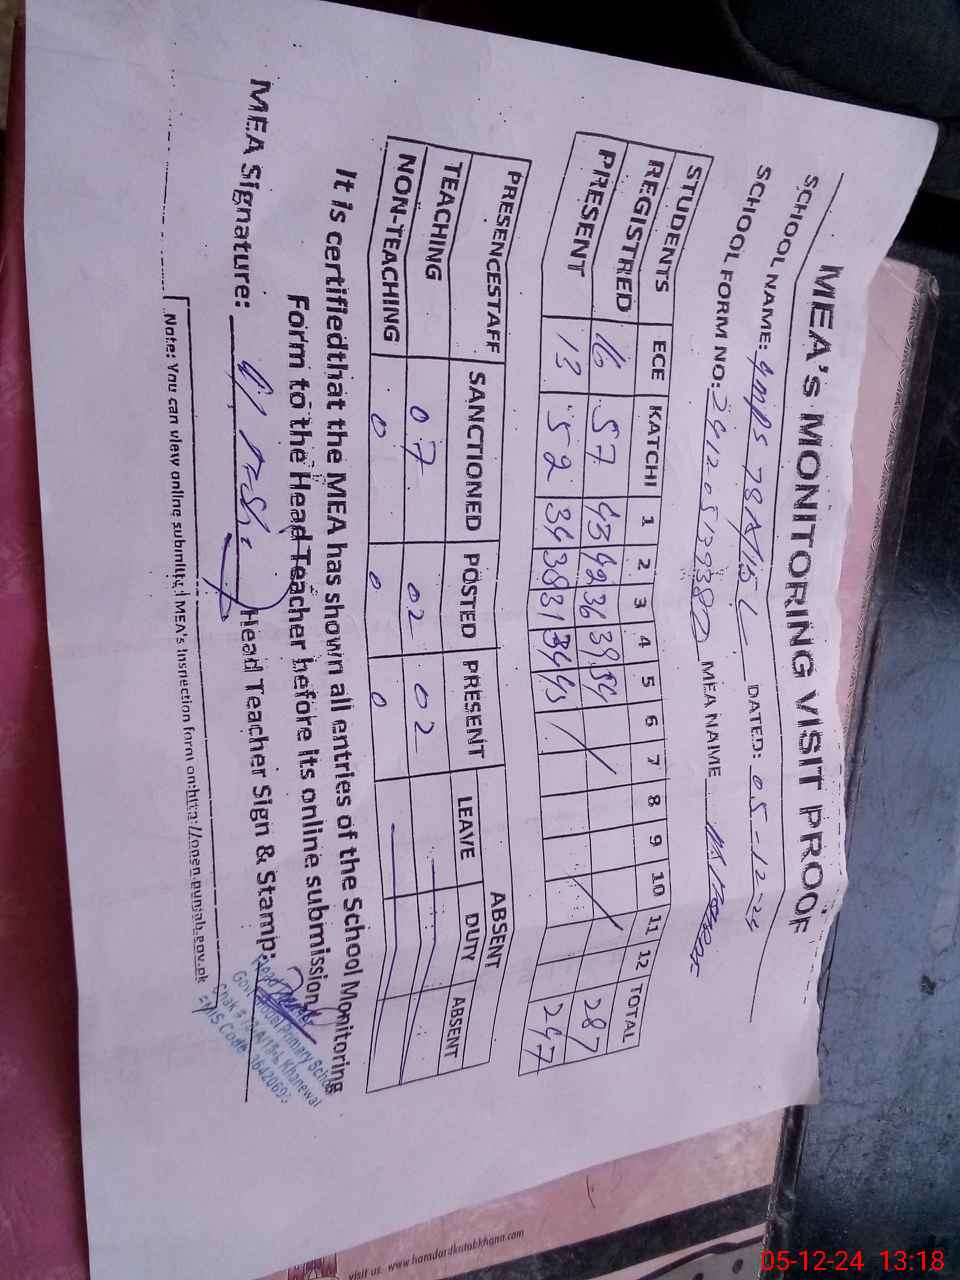 MEA'S MONITORING VISIT PROOF
SCHOOL NAME: GMPS 78A/15 L DATED: 05-12-24
SCHOOL FORM NO: MEA NAME
STUDENTS ECE KATCHI 1 2 3 4 5 6 7 8 9 10 11 12 TOTAL
REGISTRIED 16 57 43 42 36 39 54 287
PRESENT 13 52 34 38 31 34 45 247
PRESENCESTAFF SANCTIONED POSTED PRESENT ABSENT
LEAVE DUTY ABSENT
TEACHING 07 02 02
NON-TEACHING 0 0 0
It is certifiedthat the MEA has shown all entries of the School Monitoring
Form to the Head Teacher before its online submission
MEA Signature: Head Teacher Sign & Stamp:
Head
Govt Model Primary School
Chak # 78A/15-L Khanewal
EMIS Code
Note: You can view online submitted MEA's Inspection form on:http://open.punjab.gov.pk
visit us. www.hamdardkutabkhana.com
05-12-24 13:18